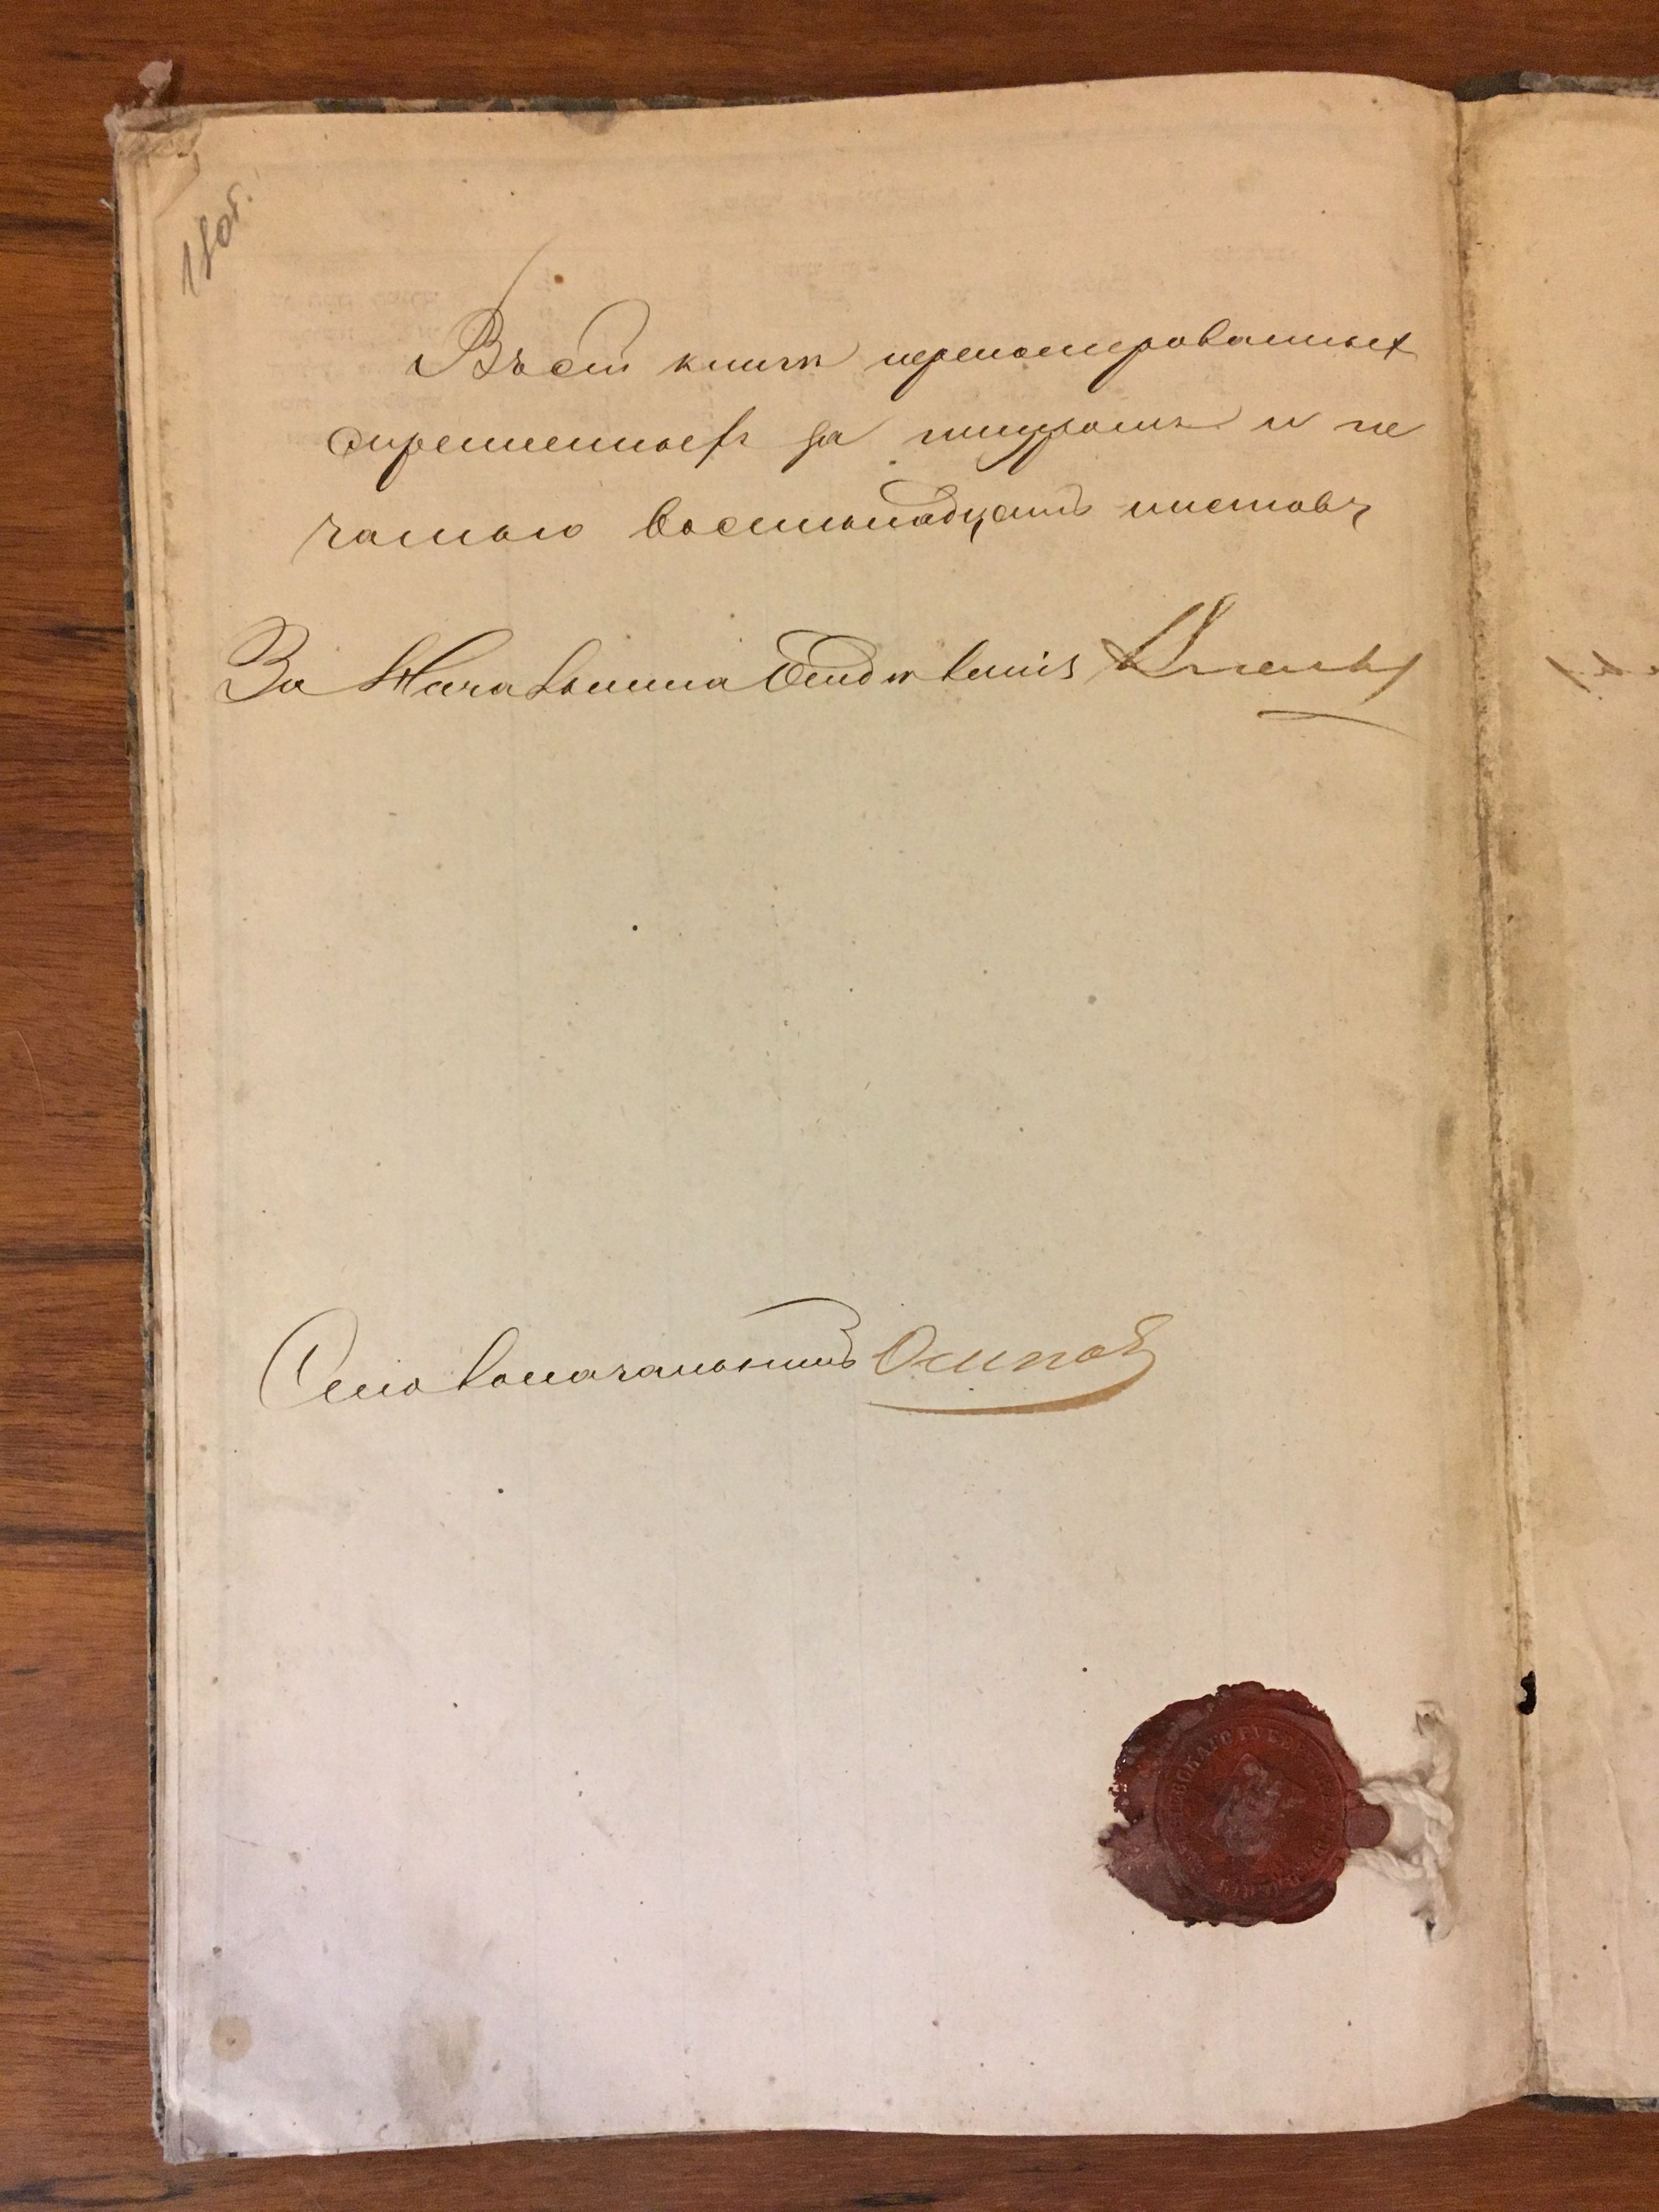 18 об.
Въ сей книги перенумерованныхъ
скрепленныхъ за шнуромъ и пе
чатью восемьнадцать листовъ
За Начальника Отделенія
Столоначальникъ Осиповъ